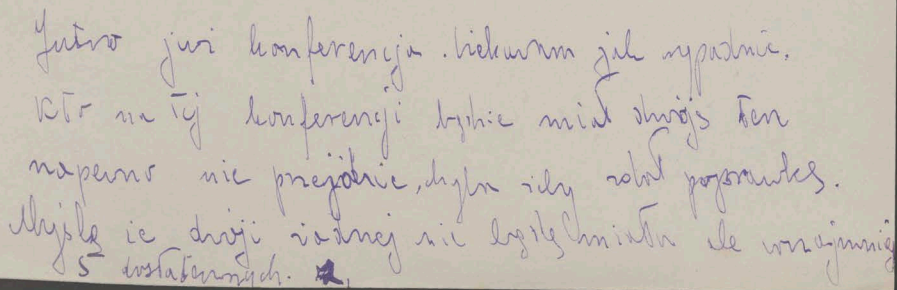 Jutro już konferencja. Ciekawam jak wypadnie.
Kto na tej konferencji będzie miał dwóję ten
napewno nie przejdzie, chyba żeby robił poprawkę.
Myślę że dwóji żadnej nie będę miała ale conajmniej
5 dostatecznych.